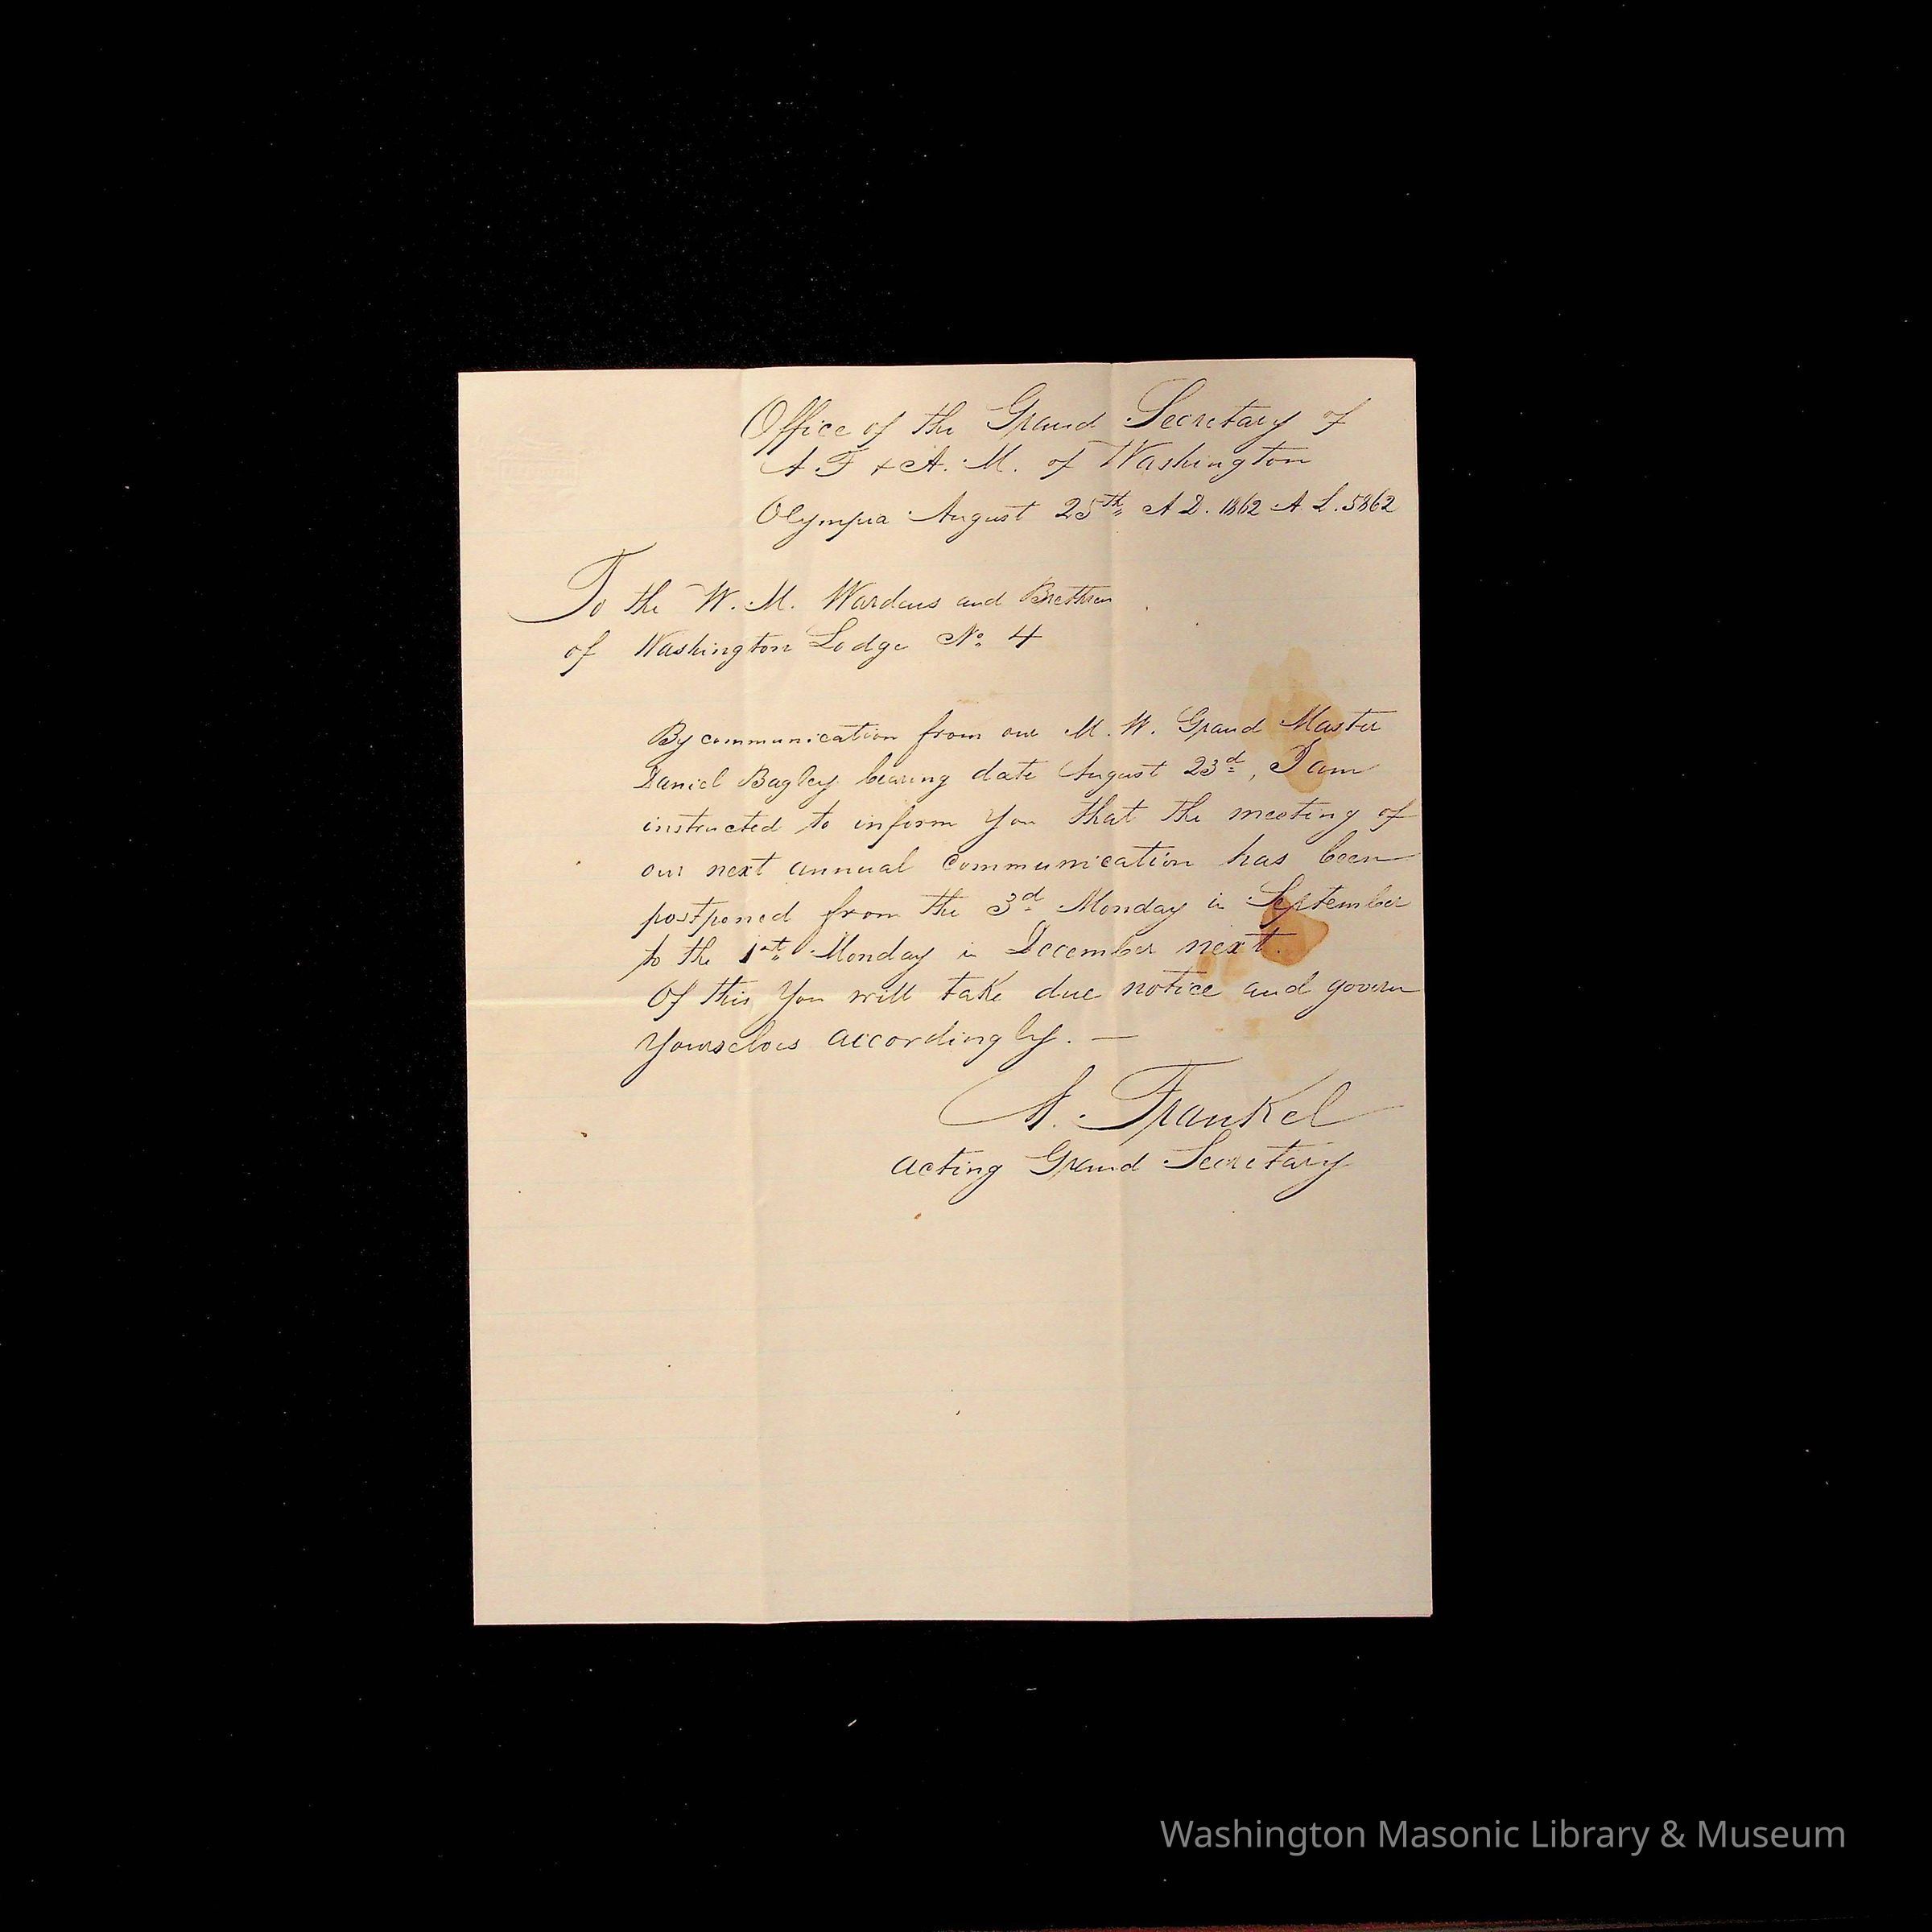 Office of the Grand Secretary of
A. F & A. M. of Washington
Olympia August 25th A D. 1862 A. L. 5862
To the W. M. Wardens and Brethren
of Washington Lodge No. 4
By communication from our M. W. Grand Master
Daniel Bagley bearing date August 23d, I am
instructed to inform You that the meeting of
our next annual communication has been
postponed from the 3d Monday in September
to the 1st Monday in December next.
Of this You will take due notice and govern
Yourselves accordingly. —
Frankel
acting Grand Secretary
Washington Masonic Library & Museum